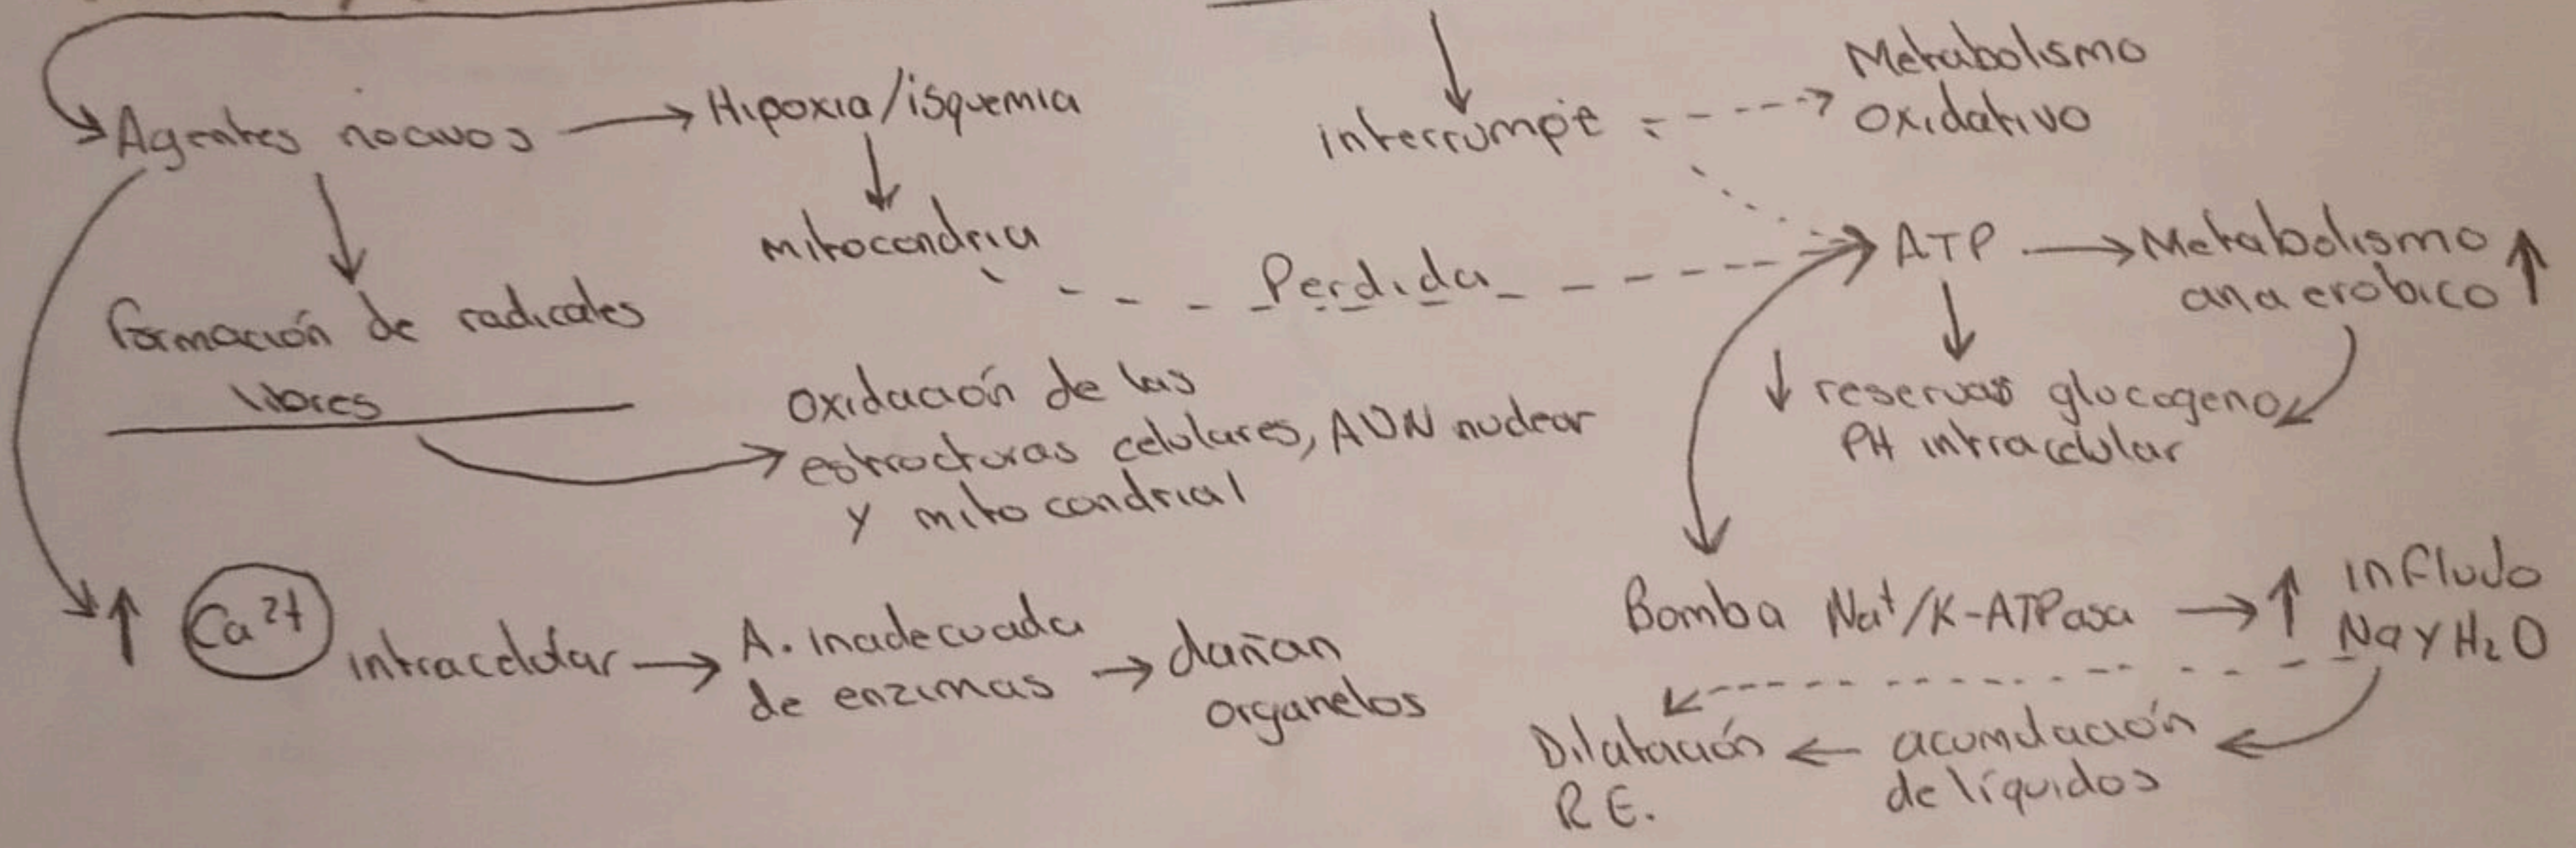 Agentes nocivos → Hipoxia/isquemia
↓
mitocondria
interrumpe
Metabolismo
oxidativo
Perdida
ATP → Metabolismo ↑
anaerobico
↓ reservas glucogeno
PH intracelular
formación de radicales
libres
oxidación de las
estructuras celulares, ADN nuclear
y mitocondrial
↑ Ca²⁺ intracelular → A. inadecuada
de enzimas → dañan
organelos
Bomba Na⁺/K-ATPasa → ↑ influjo
Na y H₂O
Dilatación ← acumulación
R.E.
de líquidos